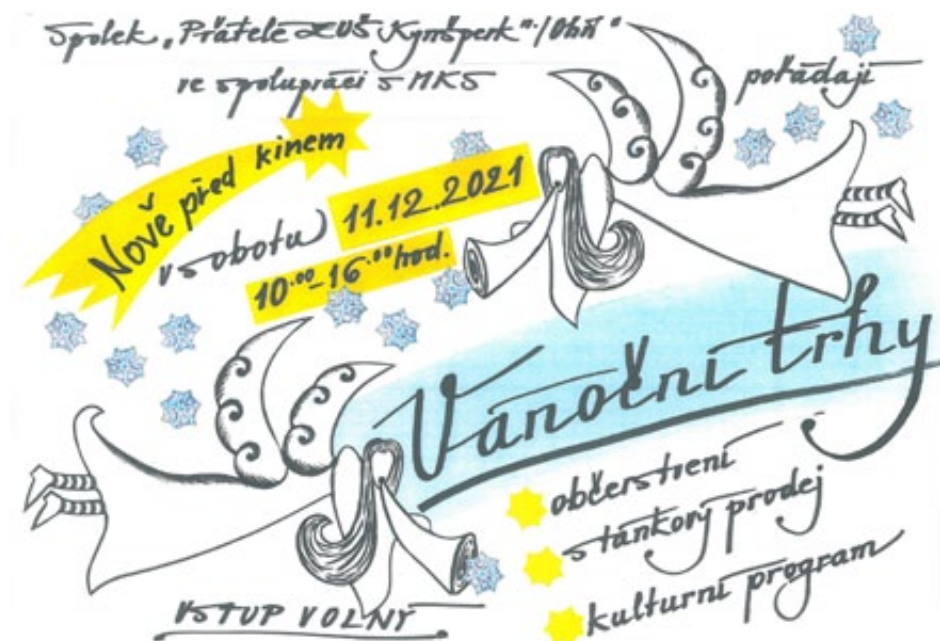 Spolek „Přátelé ZUŠ Kynšperk n./Ohří"
ve spolupráci s MKS
pořádají
Nově před kinem
v sobotu 11.12.2021
10.00-16.00 hod.
Vánoční trhy
občerstvení
stánkový prodej
kulturní program
VSTUP VOLNÝ